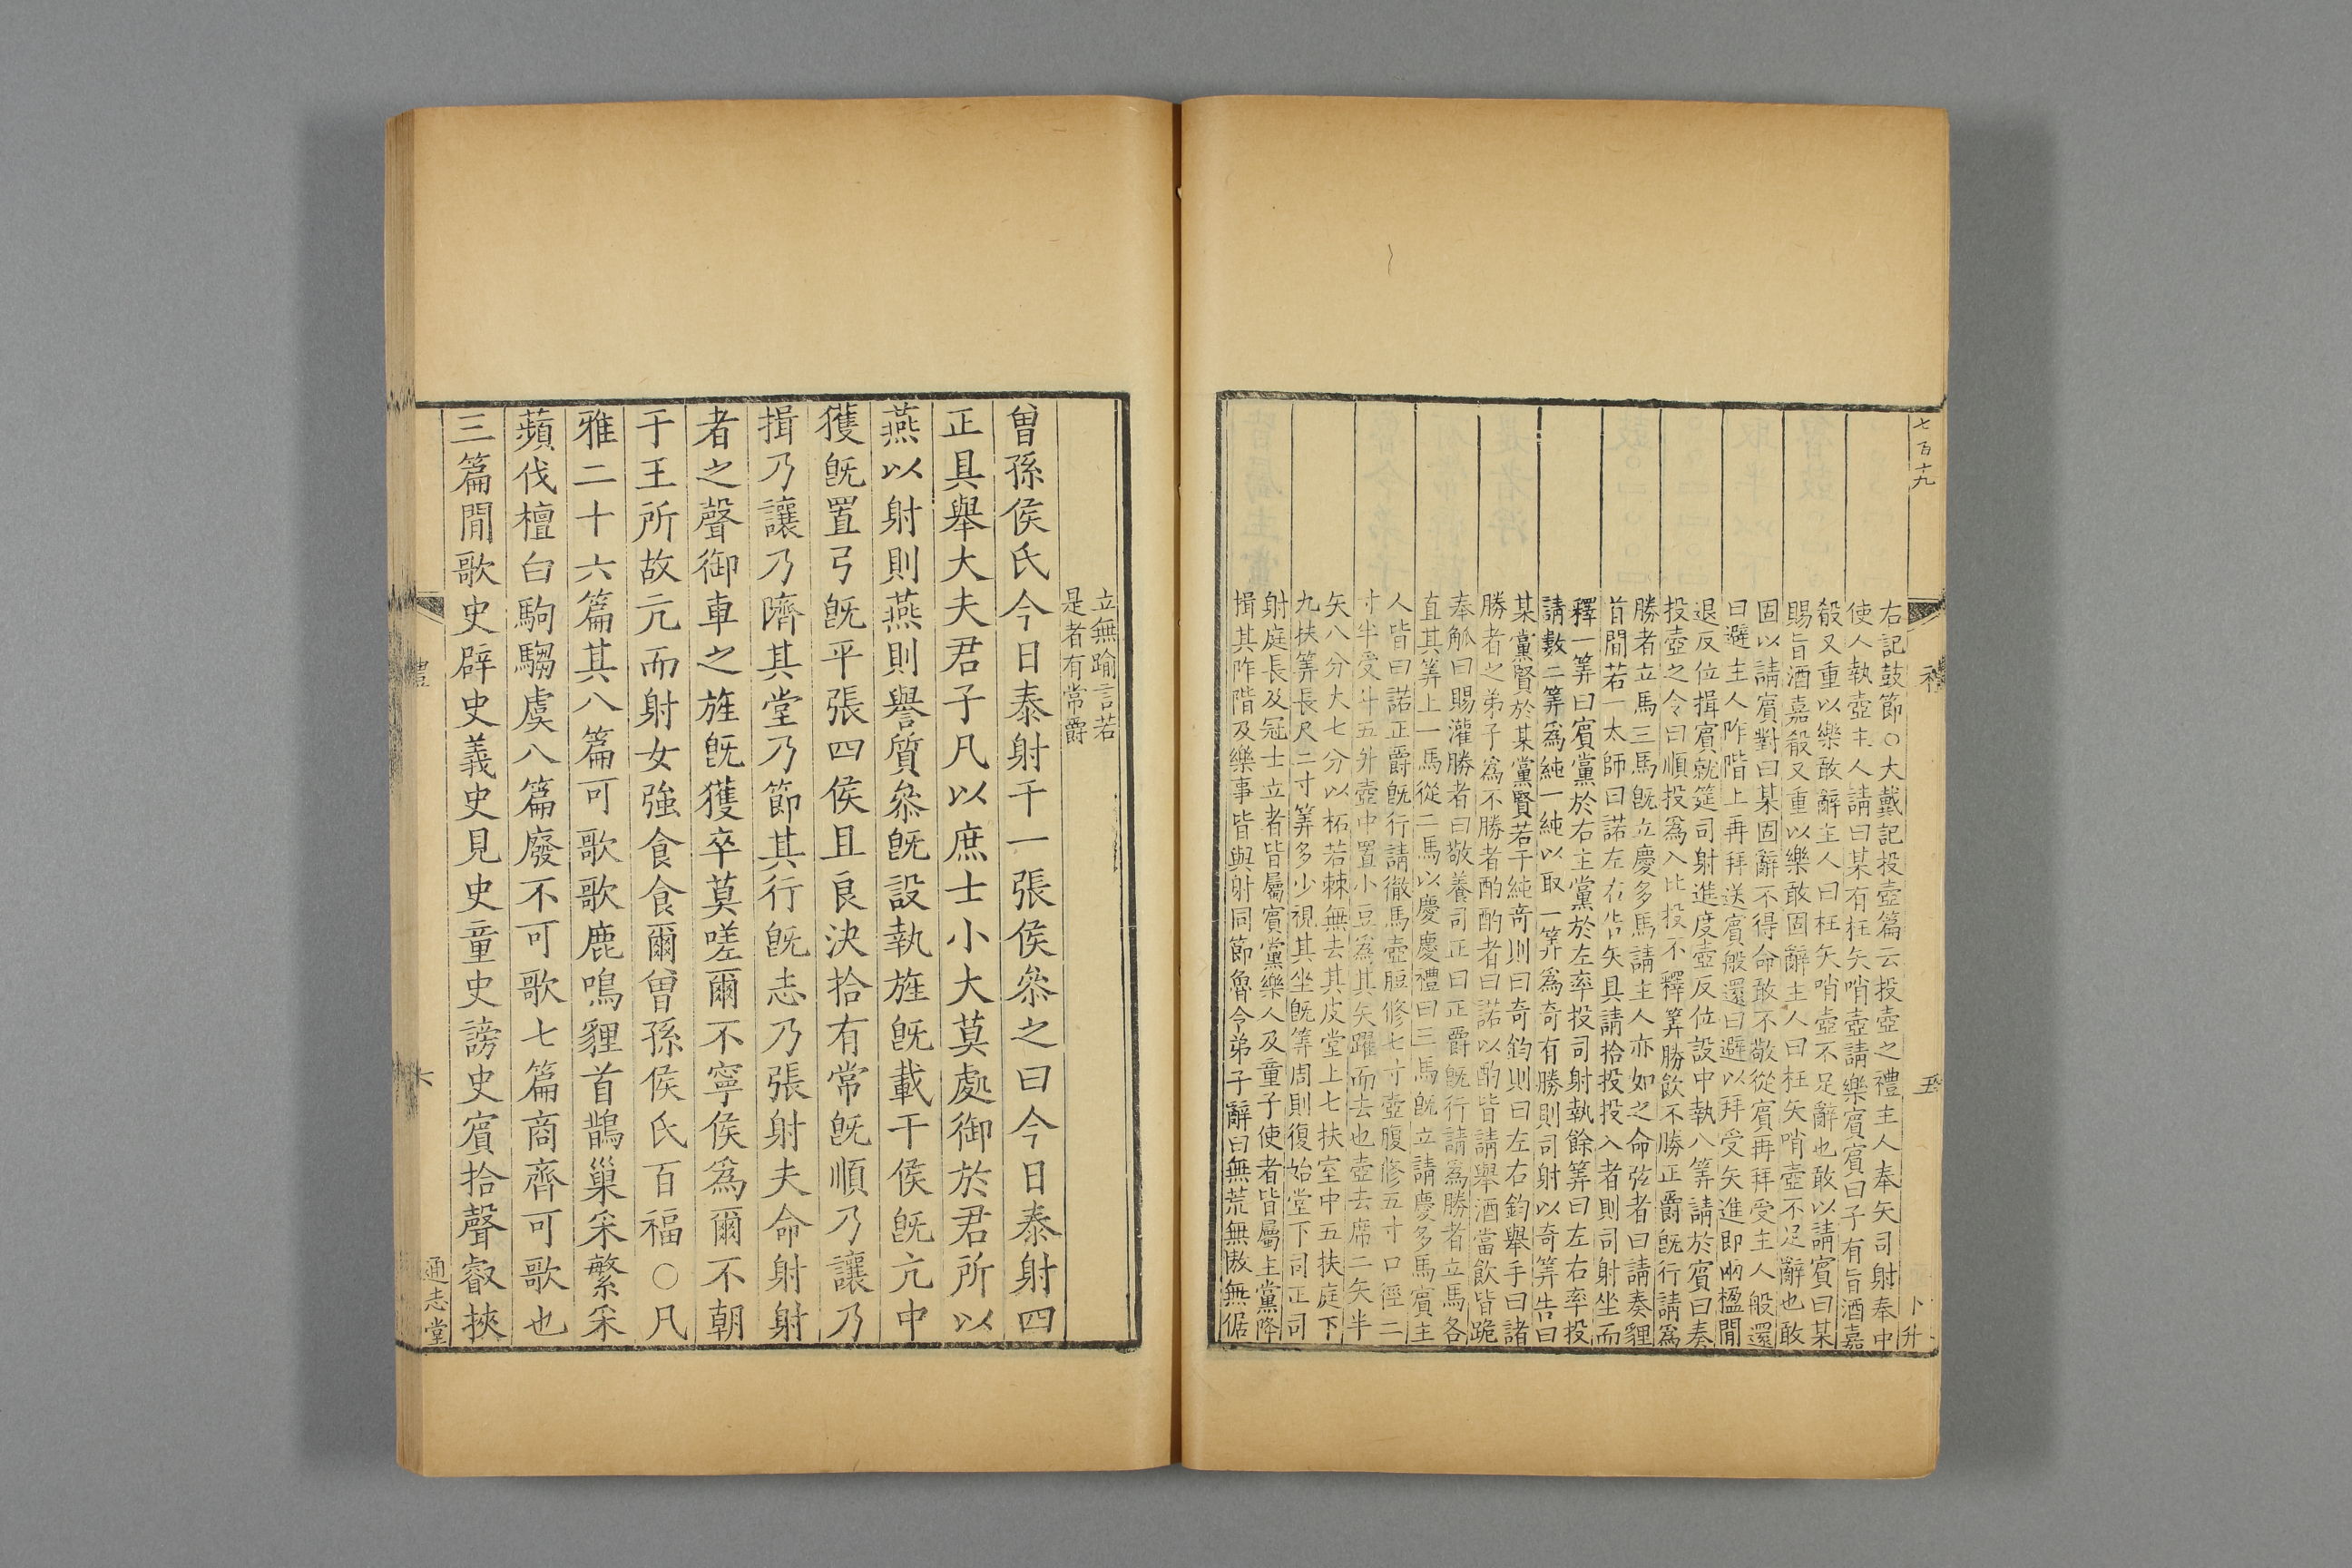 七百十九
禮
五
卜升
右記鼓節○大戴記投壺篇云投壺之禮主人奉矢司射奉中
使人執壺主人請曰某有枉矢哨壺請樂賓賓曰子有旨酒嘉
殽又重以樂敢辭主人曰枉矢哨壺不足辭也敢以請賓曰某
賜旨酒嘉殽又重以樂敢固辭主人曰枉矢哨壺不足辭也敢
固以請賓對曰某固辭不得命敢不敬從賓再拜受主人般還
曰避主人阼階上再拜送賓般還曰避以拜受矢進即兩楹閒
退反位揖賓就筵司射進度壺反位設中執八筭請於賓曰奏
投壺之令曰順投爲入比投不釋筭勝飲不勝正爵旣行請爲
勝者立馬三馬旣立慶多馬請主人亦如之命弦者曰請奏貍
首閒若一太師曰諾左右告矢具請拾投投入者則司射坐而
釋一筭曰賓黨於右主黨於左率投司射執餘筭曰左右率投
請數二筭爲純一純以取一筭爲奇有勝則司射以奇筭告曰
某黨賢於某黨賢若干純奇則曰奇鈞則曰左右鈞舉手曰諸
勝者之弟子爲不勝者酌酌者曰諾以酌皆請舉酒當飲皆跪
奉觚曰賜灌勝者曰敬養司正曰正爵旣行請爲勝者立馬各
直其筭上一馬從二馬以慶慶禮曰三馬旣立請慶多馬賓主
人皆曰諾正爵旣行請徹馬壺脰修七寸壺腹修五寸口徑二
寸半受斗五升壺中置小豆爲其矢躍而去也壺去席二矢半
矢八分大七分以柘若棘無去其皮堂上七扶室中五扶庭下
九扶筭長尺二寸筭多少視其坐旣筭周則復始堂下司正司
射庭長及冠士立者皆屬賓黨樂人及童子使者皆屬主黨降
揖其阼階及樂事皆與射同節魯令弟子辭曰無荒無慠無倨
立無踰言若
是者有常爵
曾孫侯氏今日泰射干一張侯叅之曰今日泰射四
正具舉大夫君子凡以庶士小大莫處御於君所以
燕以射則燕則譽質叅旣設執旌旣載干侯旣亢中
獲旣置弓旣平張四侯且良決拾有常旣順乃讓乃
揖乃讓乃隮其堂乃節其行旣志乃張射夫命射射
者之聲御車之旌旣獲卒莫嗟爾不寧侯爲爾不朝
于王所故亢而射女強食食爾曾孫侯氏百福○凡
雅二十六篇其八篇可歌歌鹿鳴貍首鵲巢采蘩采
蘋伐檀白駒騶虞八篇廢不可歌七篇商齊可歌也
三篇閒歌史辟史義史見史童史謗史賓拾聲叡挾
禮
六
通志堂